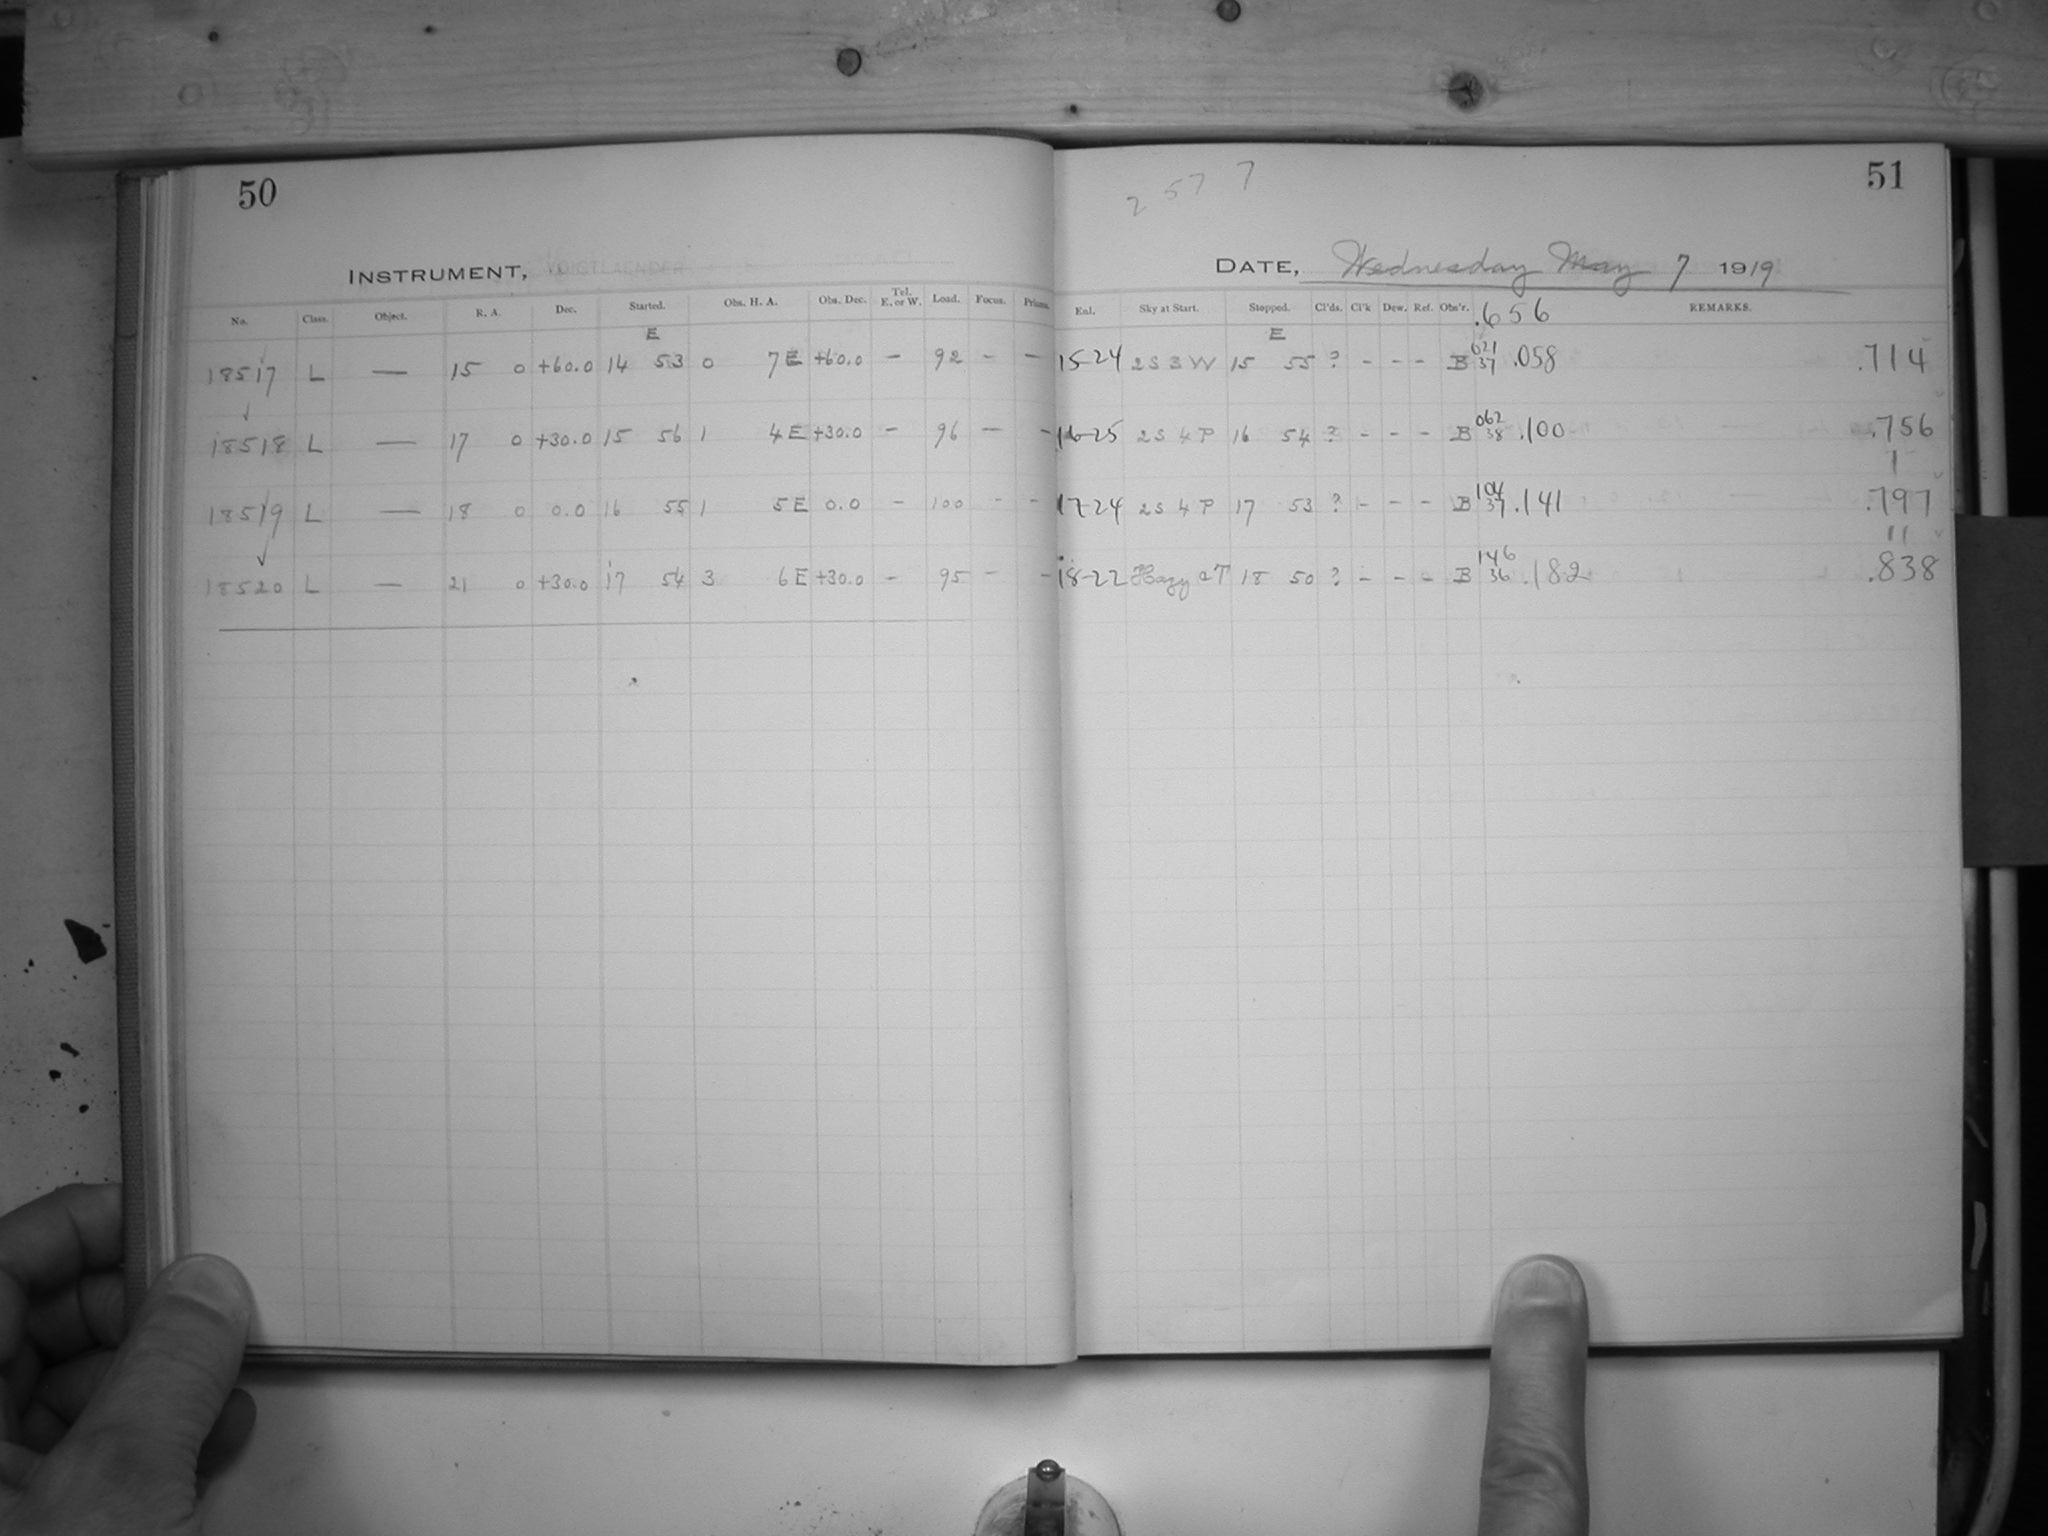 50
INSTRUMENT, VOIGTLAENDER
No. Class. Object. R. A. Dec. Started. Obs. H. A. Obs. Dec. Tel. E. or W. Load. Focus. Prisms.
E
18517 L — 15 0 +60.0 14 53 0 7 E +60.0 – 92 – –
18518 L — 17 0 +30.0 15 56 1 4 E +30.0 – 96 – –
18519 L — 18 0 0.0 16 55 1 5 E 0.0 – 100 – –
18520 L — 21 0 +30.0 17 54 3 6 E +30.0 – 95 – –
2 57 7
51
DATE, Wednesday May 7 1919
Exl. Sky at Start. Stopped. Cl'ds. Cl'k Dew. Ref. Obs'r. .656 REMARKS.
E
15-24 2S 3 W 15 55 ? – – – B 621 37 .058 .714
16-25 2S 4 P 16 54 ? – – – B 062 38 .100 .756
17-24 2S 4 P 17 53 ? – – – B 104 37 .141 .797
18-22 Hazy 2T 18 50 ? – – – B 146 36 .182 .838